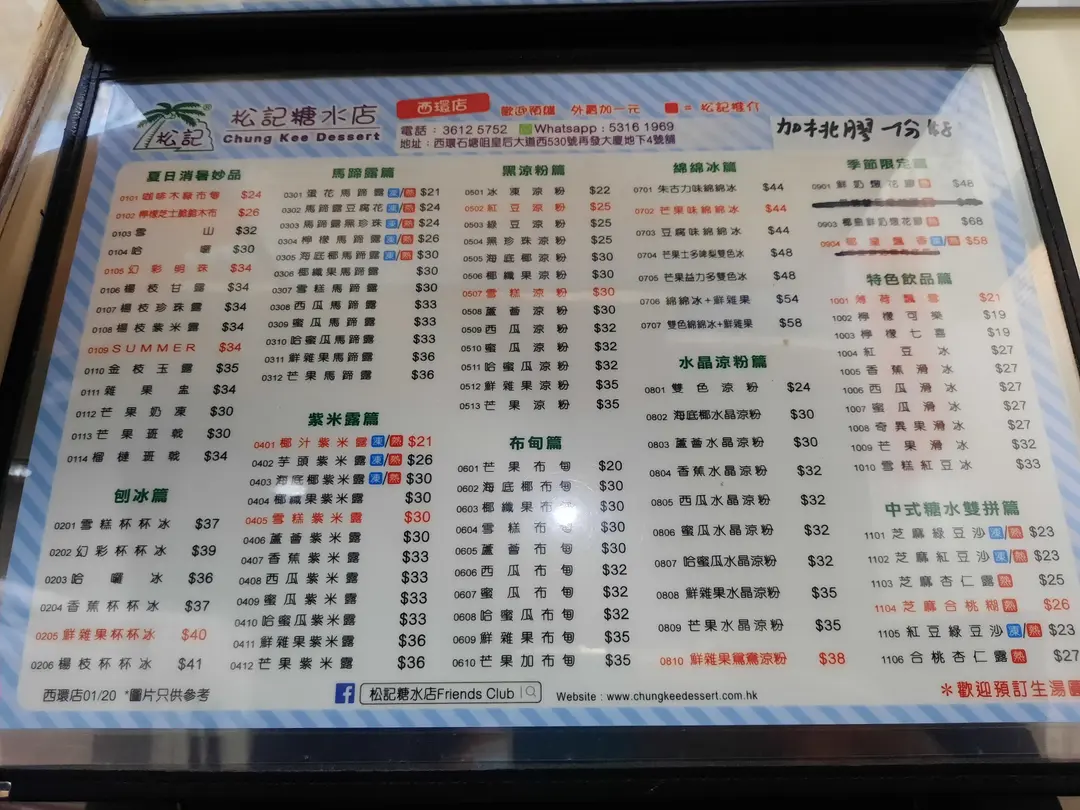 松記
松記糖水店
Chung Kee Dessert
西環店
歡迎預訂 外賣加一元 = 松記推介
電話：3612 5752 Whatsapp : 5316 1969
地址：西環石塘咀皇后大道西530號再發大廈地下4號舖
加桃膠一份
夏日消暑妙品
0101 咖啡木糠布甸 $24
0102 檸檬芝士脆脆木布 $26
0103 雪山 $32
0104 哈囉 $30
0105 幻彩明珠 $34
0106 楊枝甘露 $34
0107 楊枝珍珠露 $34
0108 楊枝紫米露 $34
0109 SUMMER $34
0110 金枝玉露 $35
0111 雜果盅 $34
0112 芒果奶凍 $30
0113 芒果班戟 $30
0114 榴槤班戟 $34
刨冰篇
0201 雪糕杯杯冰 $37
0202 幻彩杯杯冰 $39
0203 哈囉冰 $36
0204 香蕉杯杯冰 $37
0205 鮮雜果杯杯冰 $40
0206 楊枝杯杯冰 $41
馬蹄露篇
0301 蛋花馬蹄露 凍/熱 $21
0302 馬蹄露豆腐花 凍/熱 $24
0303 馬蹄露黑珍珠 凍/熱 $24
0304 檸檬馬蹄露 凍/熱 $26
0305 海底椰馬蹄露 凍/熱 $30
0306 椰纖果馬蹄露 $30
0307 雪糕馬蹄露 $30
0308 西瓜馬蹄露 $33
0309 蜜瓜馬蹄露 $33
0310 哈蜜瓜馬蹄露 $33
0311 鮮雜果馬蹄露 $36
0312 芒果馬蹄露 $36
紫米露篇
0401 椰汁紫米露 凍/熱 $21
0402 芋頭紫米露 凍/熱 $26
0403 海底椰紫米露 凍/熱 $30
0404 椰纖果紫米露 $30
0405 雪糕紫米露 $30
0406 蘆薈紫米露 $30
0407 香蕉紫米露 $33
0408 西瓜紫米露 $33
0409 蜜瓜紫米露 $33
0410 哈蜜瓜紫米露 $33
0411 鮮雜果紫米露 $36
0412 芒果紫米露 $36
黑涼粉篇
0501 冰凍涼粉 $22
0502 紅豆涼粉 $25
0503 綠豆涼粉 $25
0504 黑珍珠涼粉 $25
0505 海底椰涼粉 $30
0506 椰纖果涼粉 $30
0507 雪糕涼粉 $30
0508 蘆薈涼粉 $30
0509 西瓜涼粉 $32
0510 蜜瓜涼粉 $32
0511 哈蜜瓜涼粉 $32
0512 鮮雜果涼粉 $35
0513 芒果涼粉 $35
布甸篇
0601 芒果布甸 $20
0602 海底椰布甸 $30
0603 椰纖果布甸 $30
0604 雪糕布甸 $30
0605 蘆薈布甸 $30
0606 西瓜布甸 $32
0607 蜜瓜布甸 $32
0608 哈蜜瓜布甸 $32
0609 鮮雜果布甸 $35
0610 芒果加布甸 $35
綿綿冰篇
0701 朱古力味綿綿冰 $44
0702 芒果味綿綿冰 $44
0703 豆腐味綿綿冰 $44
0704 芒果士多啤梨雙色冰 $48
0705 芒果益力多雙色冰 $48
0706 綿綿冰+鮮雜果 $54
0707 雙色綿綿冰+鮮雜果 $58
水晶涼粉篇
0801 雙色涼粉 $24
0802 海底椰水晶涼粉 $30
0803 蘆薈水晶涼粉 $30
0804 香蕉水晶涼粉 $32
0805 西瓜水晶涼粉 $32
0806 蜜瓜水晶涼粉 $32
0807 哈蜜瓜水晶涼粉 $32
0808 鮮雜果水晶涼粉 $35
0809 芒果水晶涼粉 $35
0810 鮮雜果鴛鴦涼粉 $38
季節限定篇
0901 鮮奶燉花膠 熱 $48
0903 椰皇鮮奶燉花膠 熱 $68
0904 椰皇飄香 凍/熱 $58
特色飲品篇
1001 薄荷飄雪 $21
1002 檸檬可樂 $19
1003 檸檬七喜 $19
1004 紅豆冰 $27
1005 香蕉滑冰 $27
1006 西瓜滑冰 $27
1007 蜜瓜滑冰 $27
1008 奇異果滑冰 $27
1009 芒果滑冰 $32
1010 雪糕紅豆冰 $33
中式糖水雙拼篇
1101 芝麻綠豆沙 凍/熱 $23
1102 芝麻紅豆沙 凍/熱 $23
1103 芝麻杏仁露 熱 $25
1104 芝麻合桃糊 熱 $26
1105 紅豆綠豆沙 凍/熱 $23
1106 合桃杏仁露 熱 $27
西環店01/20 *圖片只供參考
松記糖水店Friends Club
Website : www.chungkeedessert.com.hk
*歡迎預訂生湯圓